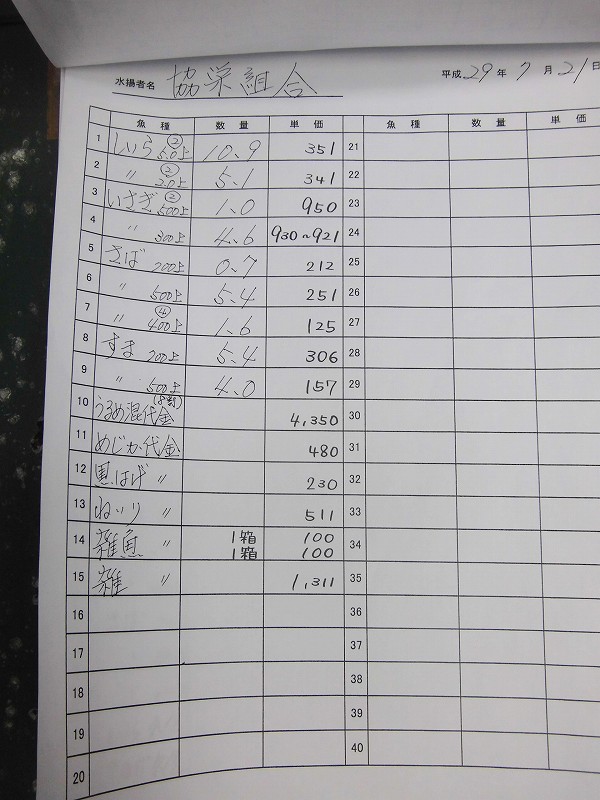 水揚者名 協栄組合 平成 29 年 7 月 21 日
魚種 数量 単価 魚種 数量 単価
1 しいら ② 5.0上 10.9 351 21
2 〃 ② 2.0上 5.1 341 22
3 いさぎ ② 500上 1.0 950 23
4 〃 300上 4.6 930~921 24
5 さば 200上 0.7 212 25
6 〃 500上 5.4 251 26
7 〃 ④ 400上 1.6 125 27
8 すま 200上 5.4 306 28
9 〃 500上 4.0 157 29
10 うるめ混代金 (8割) 4,350 30
11 めじか代金 480 31
12 黒はげ 〃 230 32
13 ねいり 〃 511 33
14 雑魚 〃 1箱 100 34
1箱 100
15 雑 〃 1,311 35
16 36
17 37
18 38
19 39
20 40